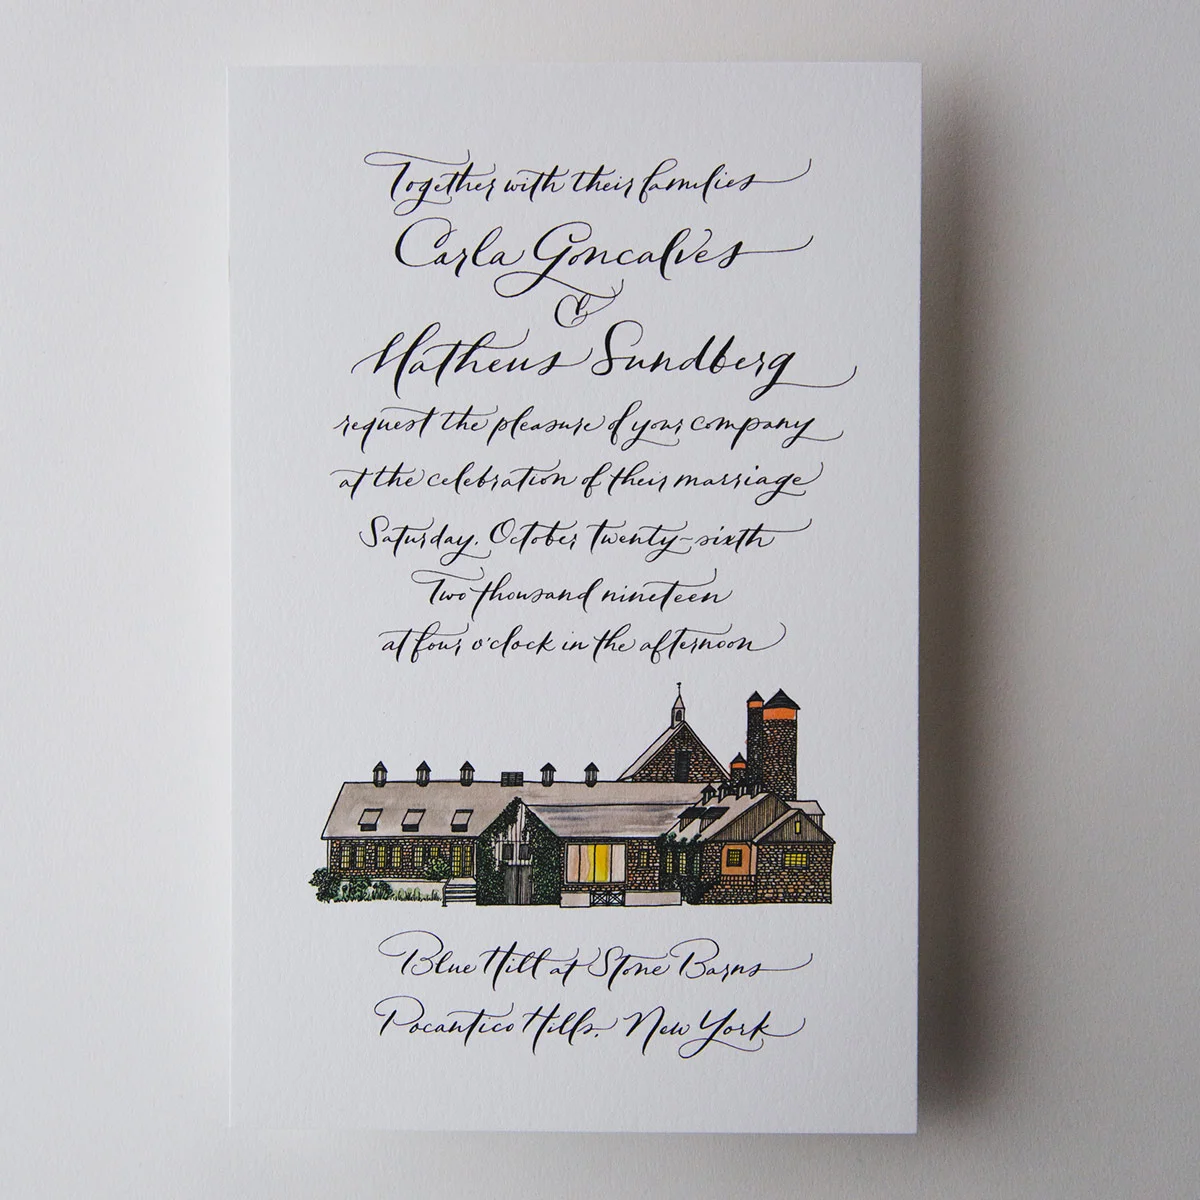 Together with their families
Carla Goncalves
&
Matheus Sundberg
request the pleasure of your company
at the celebration of their marriage
Saturday, October twenty-sixth
Two thousand nineteen
at four o'clock in the afternoon
Blue Hill at Stone Barns
Pocantico Hills, New York